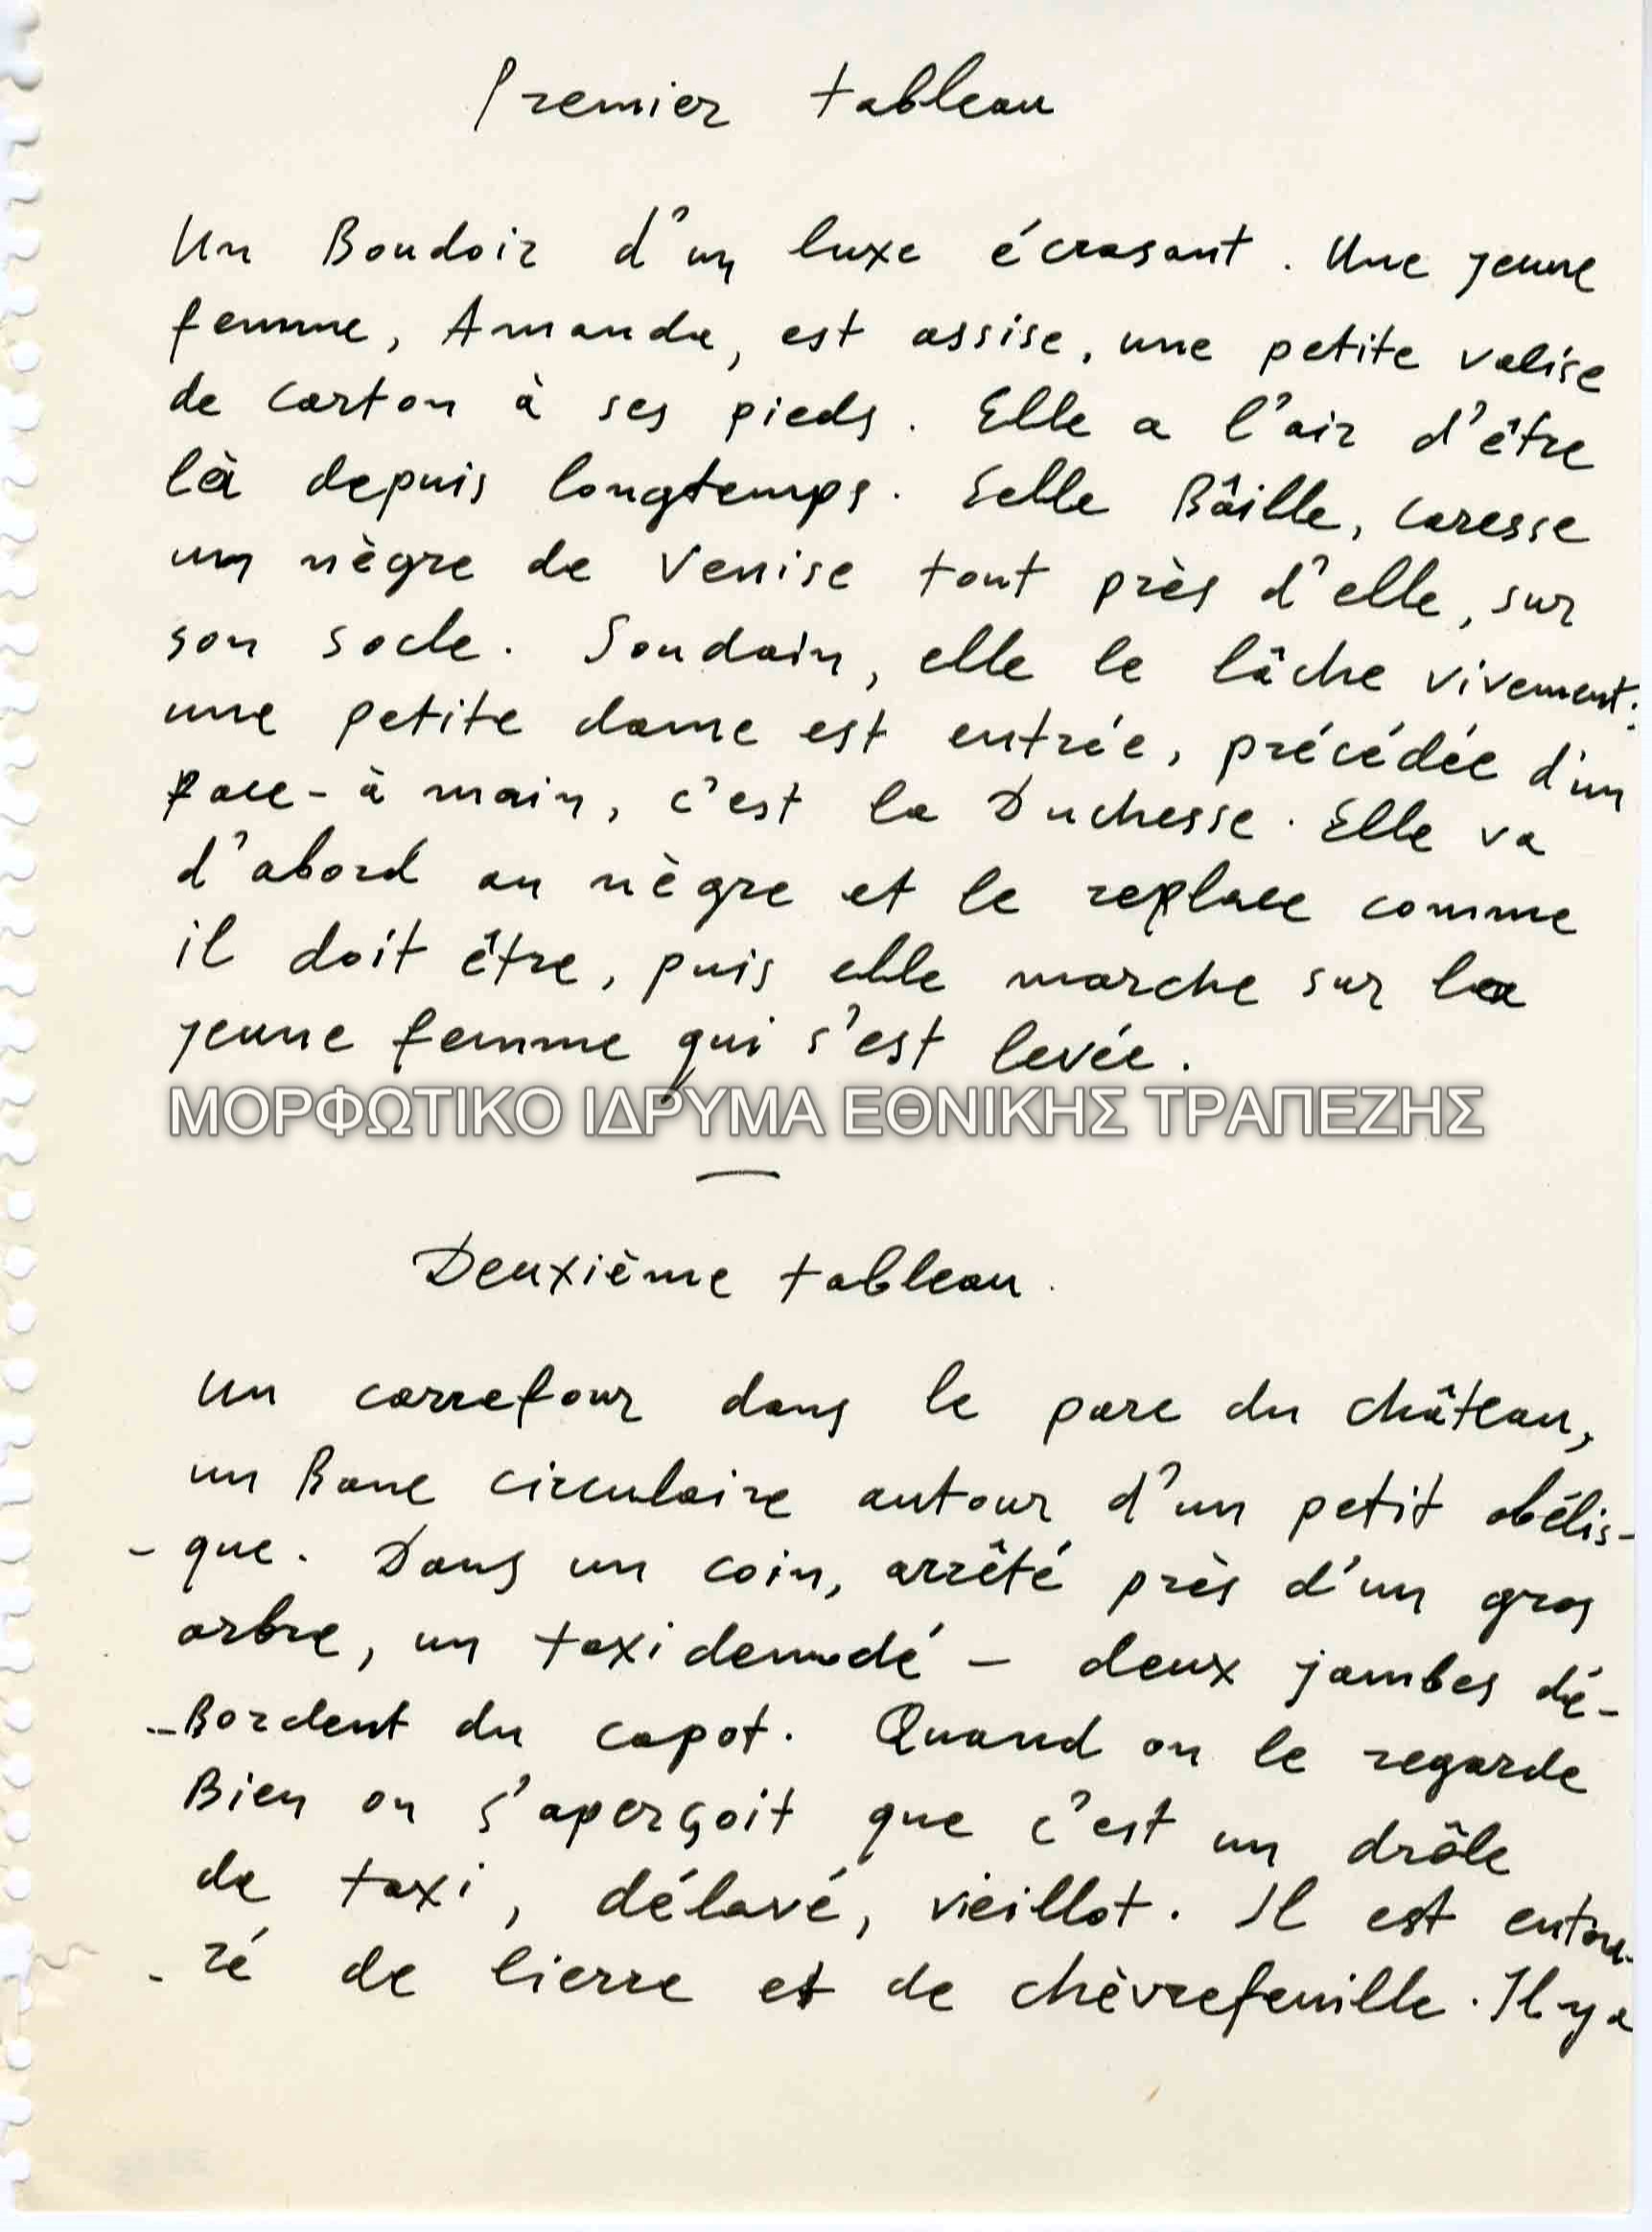 Premier tableau
Un Boudoir d'un luxe écrasant. Une jeune
femme, Amanda, est assise, une petite valise
de carton à ses pieds. Elle a l'air d'être
là depuis longtemps. Eelle Bâille, caresse
un nègre de Venise tout près d'elle, sur
son socle. Soudain, elle le lâche vivement:
une petite dame est entrée, précédée d'un
face-à main, c'est la Duchesse. Elle va
d'abord au nègre et le replace comme
il doit être, puis elle marche sur la
jeune femme qui s'est levée.
ΜΟΡΦΩΤΙΚΟ ΙΔΡΥΜΑ ΕΘΝΙΚΗΣ ΤΡΑΠΕΖΗΣ
—
Deuxième tableau.
Un carrefour dans le parc du château,
un Banc circulaire autour d'un petit obélis-
-que. Dans un coin, arrêté près d'un gros
arbre, un taxi demodé – deux jambes dé-
-Bordent du capot. Quand on le regarde
Bien on s'aperçoit que c'est un drôle
de taxi, délavé, vieillot. Il est entou-
-ré de lierre et de chèvrefeuille. Il y a